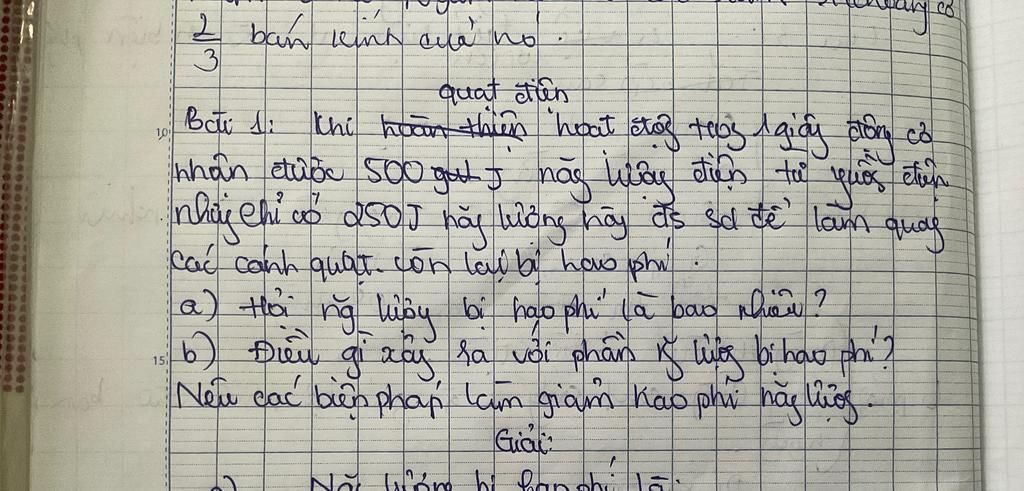 2/3 bán kính của nó.
quạt điện
Bài 1: Khi hoàn thiện hoạt động trong 1 giây động cơ
nhận được 500 J năng lượng điện từ nguồn điện
nhưng chỉ có 250J năng lượng này đc sd để làm quay
các cánh quạt. còn lại bị hao phí.
a) Hỏi năng lượng bị hao phí là bao nhiêu?
b) Điều gì xảy ra với phần năng lượng bị hao phí?
Nêu các biện pháp làm giảm hao phí năng lượng.
Giải:
a) Năng lượng bị hao phí là: